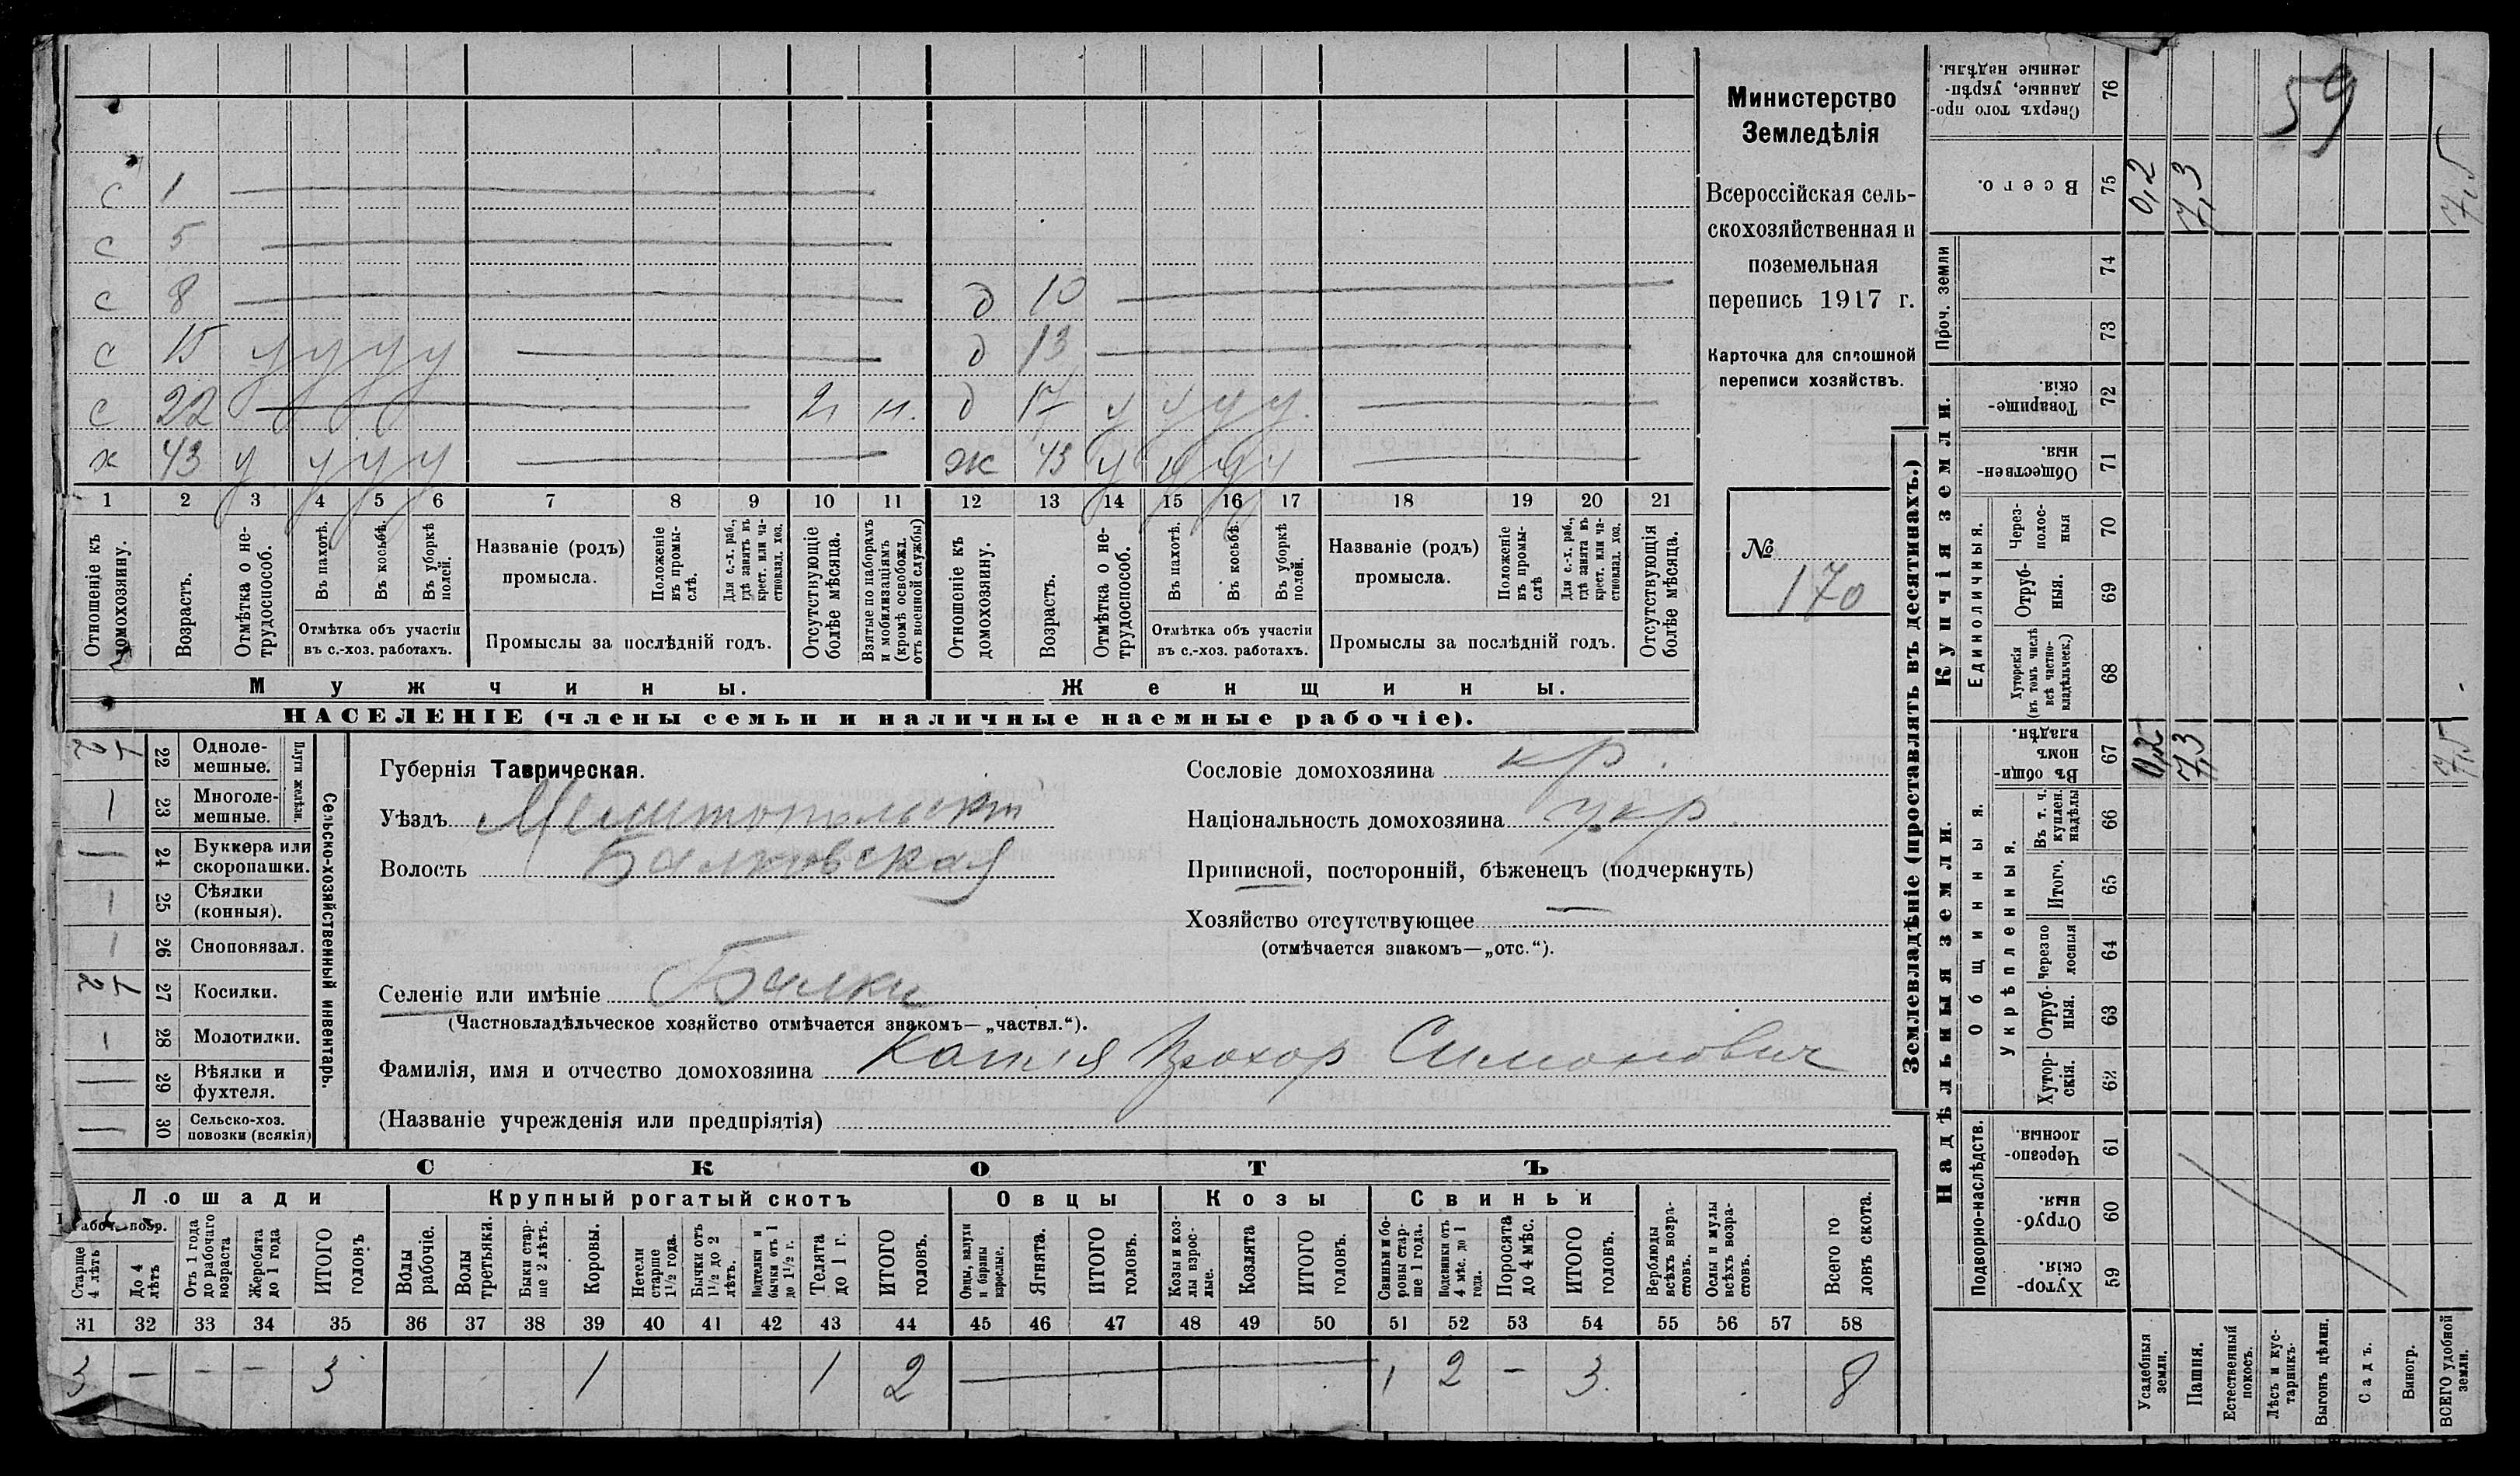 с 1
с 5
с 8 д 10
с 15 у у у у д 13
с 22 д 17 у у у у
х 43 у у у у ж 43 у у у у
1 2 3 4 5 6 7 8 9 10 11 12 13 14 15 16 17 18 19 20 21
Отношеніе къ домохозяину.
Возрастъ.
Отмѣтка о не-
трудоспособ.
Въ пахотѣ.
Въ косьбѣ.
Въ уборкѣ
полей.
Отмѣтка объ участіи
въ с.-хоз. работахъ.
Названіе (родъ)
промысла.
Положеніе
въ промы-
слѣ.
Для с.-х. раб.,
гдѣ занятъ въ
крест. или ча-
стновлад. хоз.
Промыслы за послѣдній годъ.
Отсутствующіе
болѣе мѣсяца.
Взятые по наборамъ
и мобилизаціямъ
(кромѣ освобожд.
отъ военной службы)
Отношеніе къ
домохозяину.
Возрастъ.
Отмѣтка о не-
трудоспособ.
Въ пахотѣ.
Въ косьбѣ.
Въ уборкѣ
полей.
Отмѣтка объ участіи
въ с.-хоз. работахъ.
Названіе (родъ)
промысла.
Положеніе
въ промы-
слѣ
Для с.-х. раб.,
гдѣ занята въ
крест. или ча-
стновлад. хоз.
Промыслы за послѣдній годъ.
Отсутствующія
болѣе мѣсяца.
Мужчины. Женщины.
НАСЕЛЕНІЕ (члены семьи и наличные наемные рабочіе).
Министерство
Земледѣлія
Всероссійская сель-
скохозяйственная и
поземельная
перепись 1917 г.
Карточка для сплошной
переписи хозяйствъ.
№
170
Сельско-хозяйственный инвентарь.
Плуги желѣзн.
22 Одноле-
мешные.
23 Многоле-
мешные.
24 Буккера или
скоропашки.
25 Сѣялки
(конныя).
26 Сноповязал.
27 Косилки.
28 Молотилки.
29 Вѣялки и
фухтеля.
30 Сельско-хоз.
повозки (всякія)
Губернія Таврическая.
Уѣздъ Мелитопольскій
Волость Балковская
Селеніе или имѣніе Балки
(Частновладѣльческое хозяйство отмѣчается знакомъ—„частвл.“).
Фамилія, имя и отчество домохозяина Прохор Симонович
(Названіе учрежденія или предпріятія)
Сословіе домохозяина кр.
Національность домохозяина укр.
Приписной, посторонній, бѣженецъ (подчеркнуть)
Хозяйство отсутствующее —
(отмѣчается знакомъ—„отс.“).
СКОТЪ
Лошади Крупный рогатый скотъ Овцы Козы Свиньи
Рабоч. возр.
Старше
4 лѣтъ
До 4
лѣтъ
Отъ 1 года
до рабочаго
возраста
Жеребята
до 1 года
ИТОГО
головъ
Волы
рабочіе.
Волы
третьяки.
Быки стар-
ше 2 лѣтъ.
Коровы.
Нетели
старше
1½ года.
Бычки отъ
1½ до 2
лѣтъ.
Подтелки и
бычки отъ 1
до 1½ г.
Телята
до 1 г.
ИТОГО
головъ.
Овцы, валухи
и бараны
взрослые.
Ягнята.
ИТОГО
головъ.
Козы и коз-
лы взрос-
лые.
Козлята
ИТОГО
головъ.
Свиньи и бо-
ровы стар-
ше 1 года.
Подсвинки отъ
4 мѣс. до 1
года.
Поросята
до 4 мѣс.
ИТОГО
головъ.
Верблюды
всѣхъ возра-
стовъ.
Ослы и мулы
всѣхъ возра-
стовъ.
Всего го
ловъ скота.
31 32 33 34 35 36 37 38 39 40 41 42 43 44 45 46 47 48 49 50 51 52 53 54 55 56 57 58
3 — — — 3 1 1 2 — 1 2 — 3. 8
Землевладѣніе (проставлять въ десятинахъ.)
Надѣльныя земли. Купчія земли. Проч. земли
Подворно-наслѣдств.
Общинныя.
Укрѣпленныя.
Единоличныя.
Сверхъ того про-
данные, укрѣп-
ленные надѣлы. 76
Всего. 75 0,2 7,3 7,5
59
74
73
Товарище-
скія. 72
Обществен-
ныя. 71
Через-
полос-
ныя 70
Отруб-
ныя. 69
Хуторскія
(въ томъ числѣ
всѣ частно-
владѣльческ.) 68
Въ общи-
номъ
владѣн. 67 0,2 7,3 7,5
Въ т. ч.
куплен.
надѣлы 66
Итого. 65
Черезпо
лосныя 64
Отруб-
ныя. 63
Хутор-
скія. 62
Черезпо-
лосныя. 61
Отруб-
ныя. 60
Хутор-
скія. 59
Усадебныя
земли.
Пашня.
Естественный
покосъ.
Лѣсъ и кус-
тарникъ.
Выгонъ цѣлин.
Садъ.
Виногр.
ВСЕГО удобной
земли.